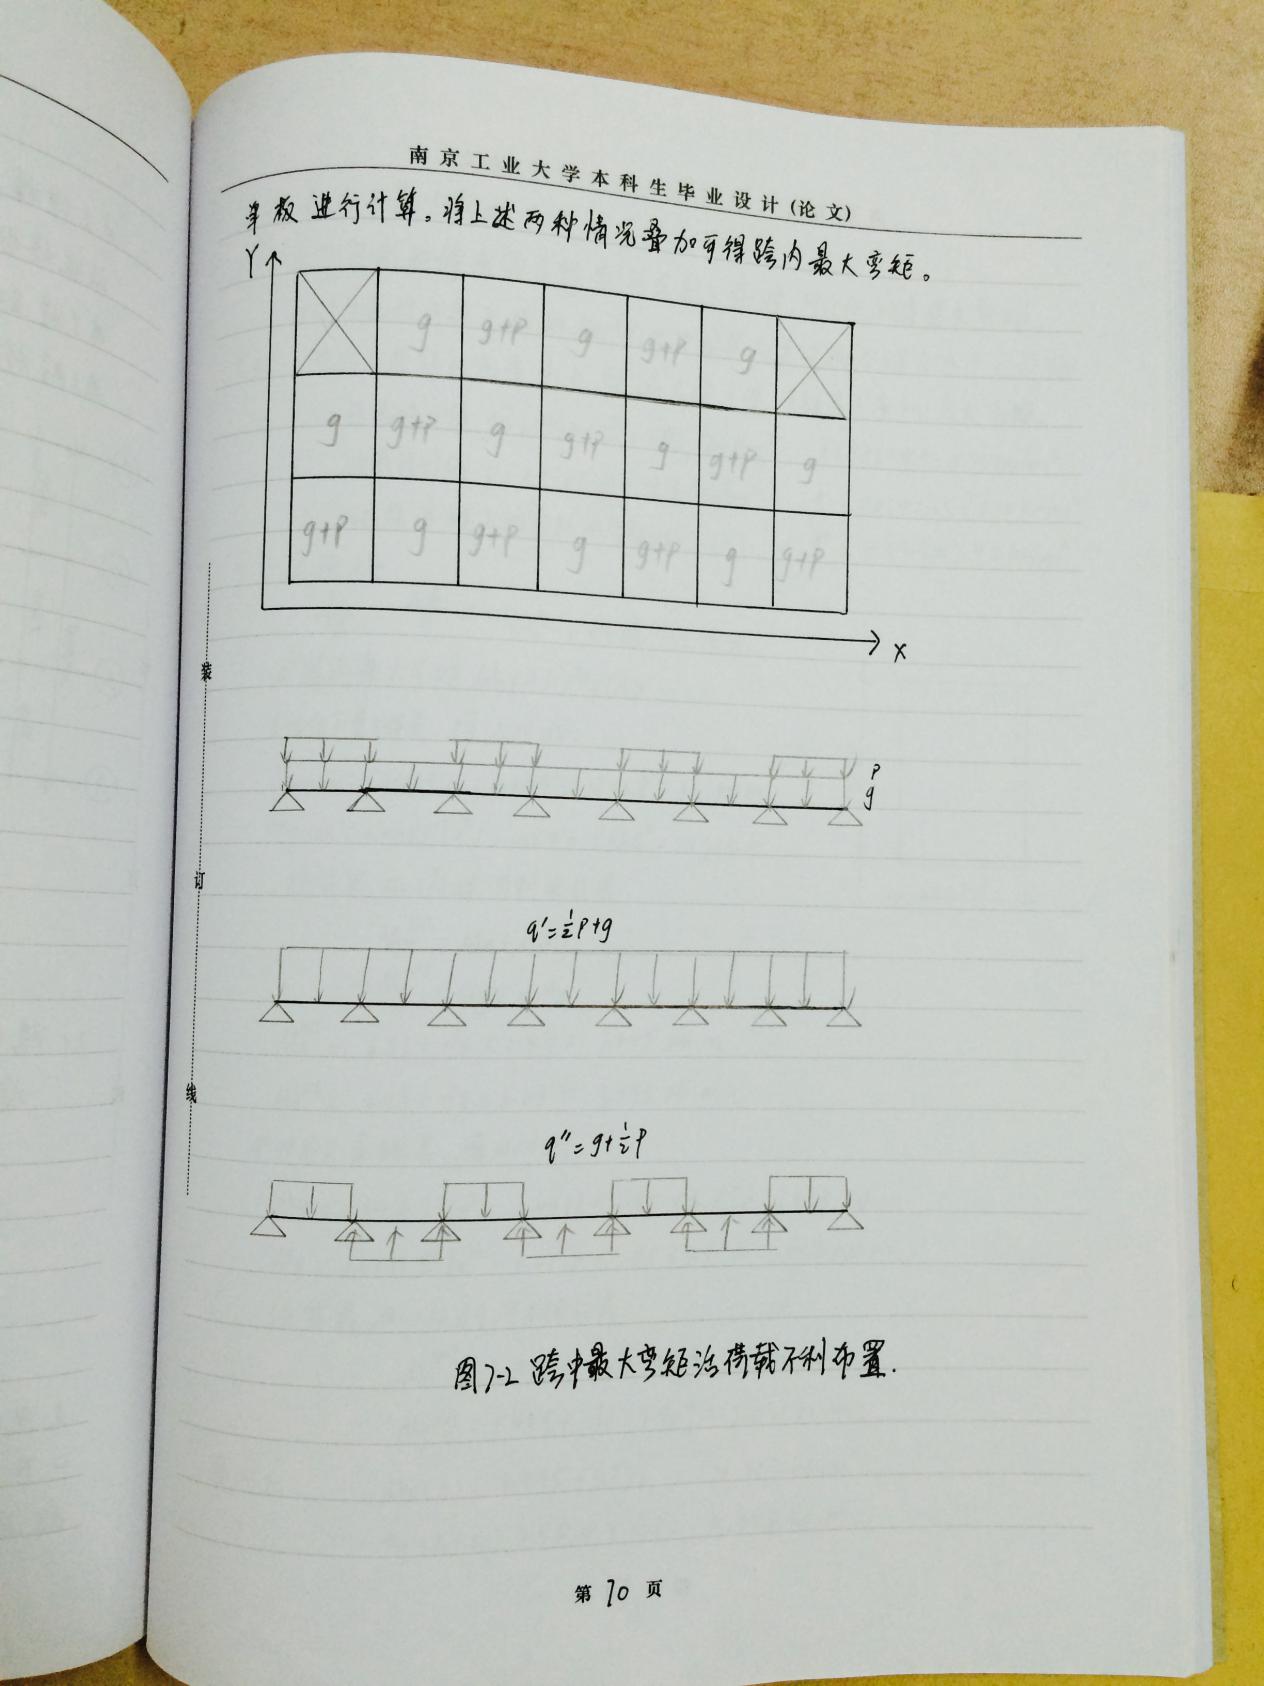 南京工业大学本科生毕业设计(论文)
单板进行计算。将上述两种情况叠加可得跨内最大弯矩。
Y
g g+p g g+p g
g g+p g g+p g g+p g
g+p g g+p g g+p g g+p
X
装
p
g
订
q'=½p+g
线
q''=g+½p
图7-2 跨中最大弯矩活荷载不利布置.
第 70 页